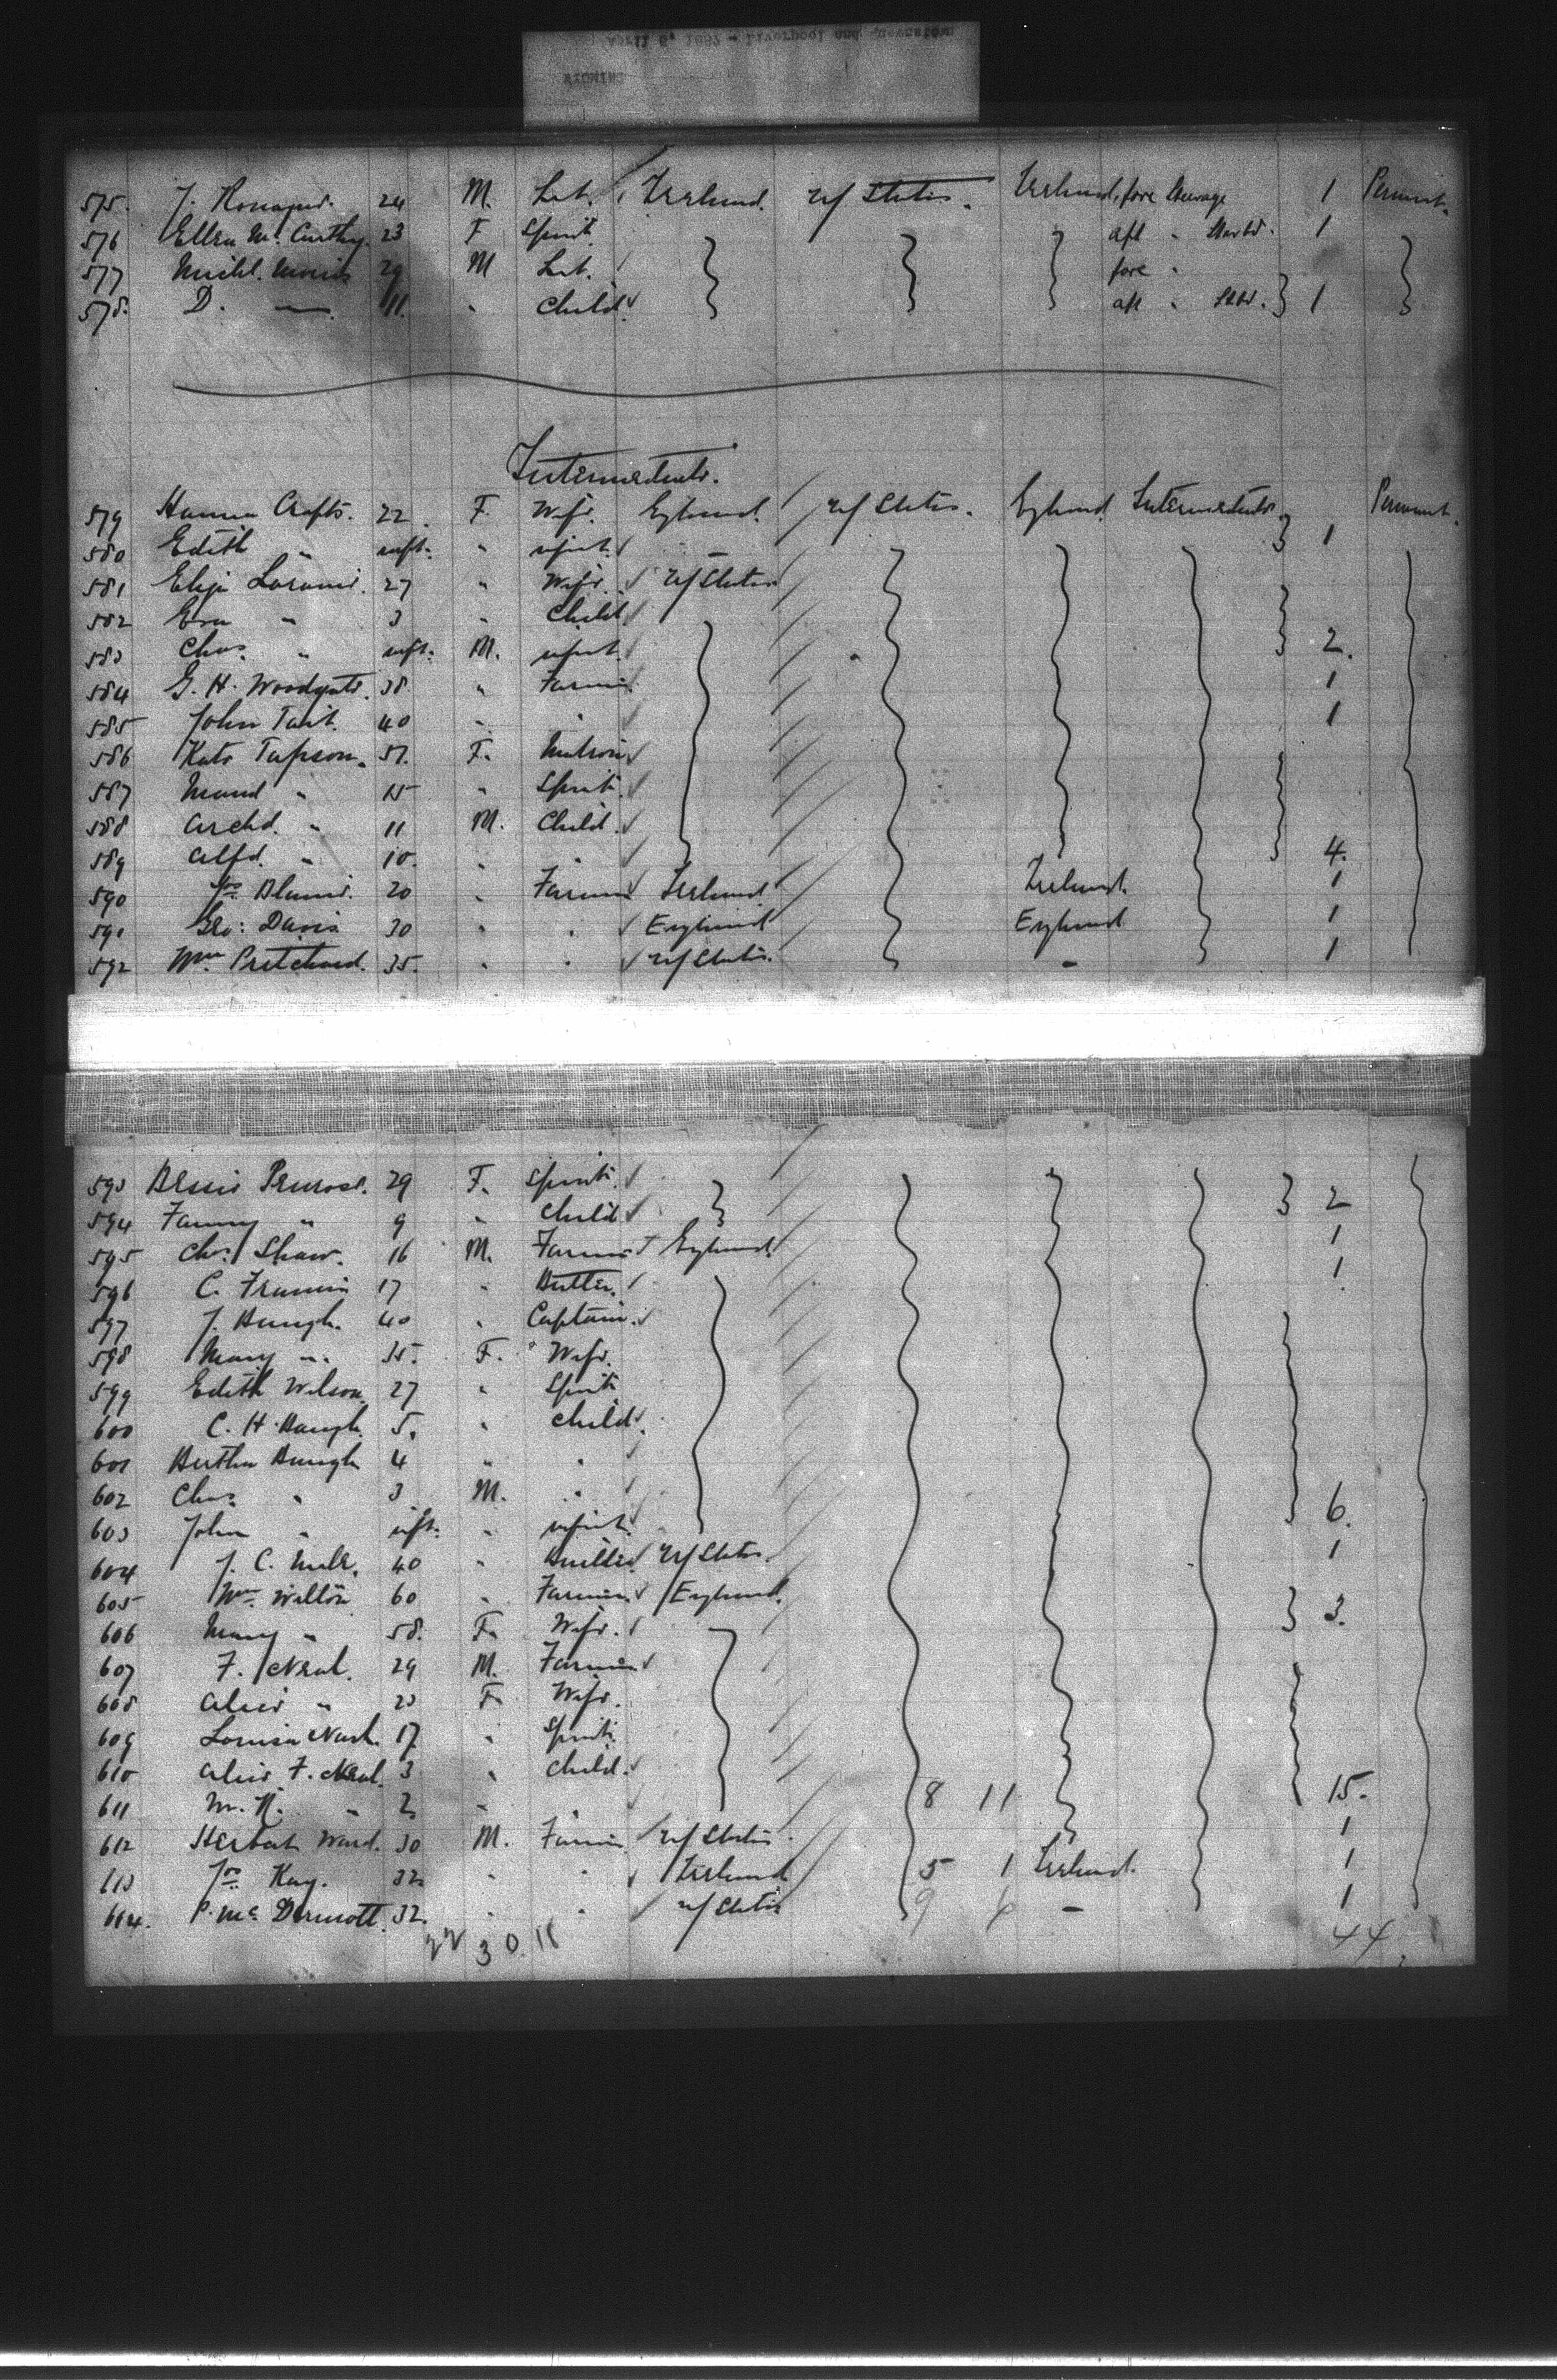 April 6, 1892 - Liverpool and Queenstown
WYOMING
575. J. 24 M. Lab. Ireland. U/States. Ireland, fore Steerage 1 Permnt.
576 Ellen Mc. Carthy. 23 F Spinst. aft " Starbd. 1
577 Michl. Morris 29 M Lab. fore "
578. D. — 11. " Child. aft " Stbd. 1
Intermediate.
579 Hanna Crofts. 22. F. Wife. England. U/States. England. Intermediate Permnt.
580 Edith " inft. " infnt. - 1
581 Eliza 27 " Wife. U/States
582 3 " Child
583 Chas. " inft. M. infnt. 2.
584 G. H. Woodgate. 38. " Farmer 1
585 John Tait. 40 " " 1
586 Kate Tapson. 51. F. Matron
587 Maud " 15 " Spinst.
588 Archd. " 11 M. Child.
589 Alfd. " 10. " " 4.
590 Jno. 20 " Farmer Ireland. Ireland. 1
591 Geo: Davis 30 " " England England 1
592 Wm. Pritchard. 35. " " U/States. - 1
593 Bessie Penrose. 29 F. Spinst.
594 Fanny " 9 " Child 2
595 Chs. Shaw. 16 M. Farmer England. 1
596 C. Francis 17 " Butler. 1
597 J. Baugh. 40 " Captain.
598 Mary " 35. F. Wife.
599 Edith Wilson. 27 " Spinst.
600 C. H. Baugh. 5. " Child.
601 Bertha Baugh 4 " "
602 Chas. " 3 M. "
603 John " inft. " infnt. 6.
604 J. C. 40 " U/States. 1
605 Wm. Wilton 60 " Farmer England.
606 Mary " 58. F. Wife. 3.
607 F. Neal. 29 M. Farmer
608 Alice " 23 F Wife.
609 Louisa Nash. 17 " Spinst.
610 Alice F. Neal. 3 " Child.
611 M. K. " 2 " 8 11 15.
612 Herbert Ward. 30 M. Farmer U/States. 1
613 Jno. Kay. 32 " " Ireland 5 1 Ireland. 1
614. P. Mc. Dermott. 32. " " U/States 9 6 - 1
22 30 11 44